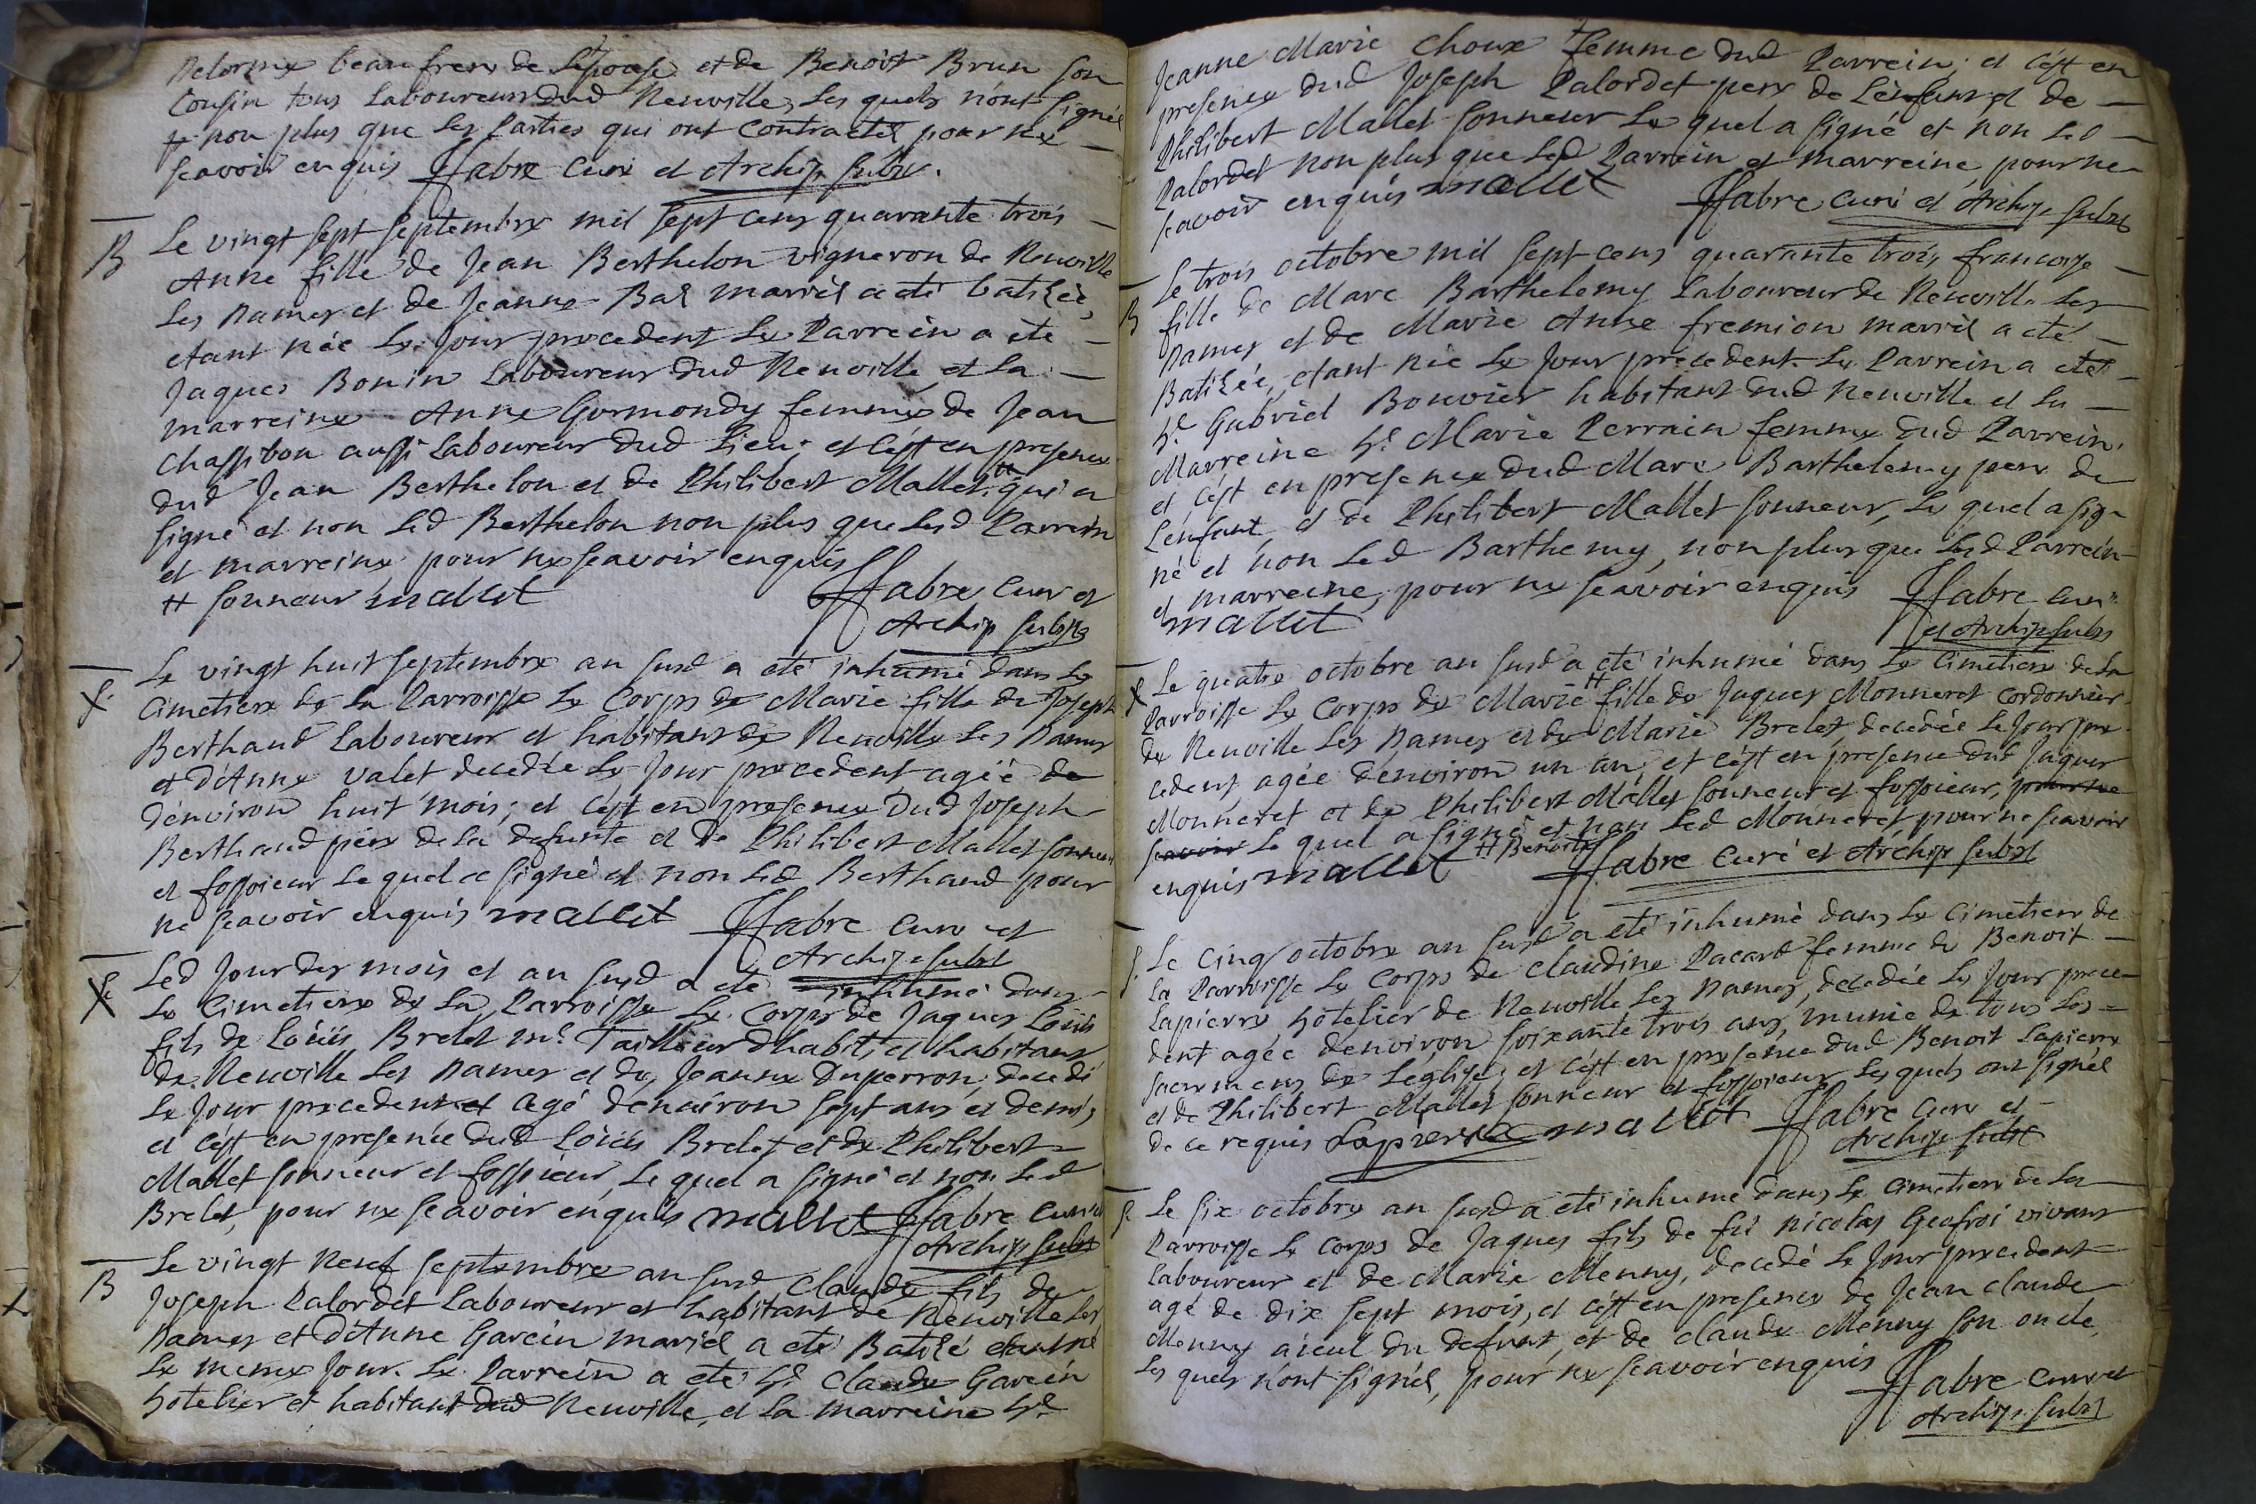 Delorme beau frere de l'epouse et de Benoit Brun son
Cousin tous Laboureurs dud Neuville, les quels n'ont signés
non plus que les Parties qui ont contractés pour ne
scavoir enquis ffabre Curé et Archip. subst.
B Le vingt sept septembre mil sept cens quarante trois
Anne fille de Jean Berthelon vigneron de Neuville
Les Dames et de Jeanne Bal mariés a eté batisée,
etant née le jour precedent Le Parrein a ete
Jaques Bonin Laboureur dud Neuville et la
marreine Anne Gormondy femme de Jean
Chassibou aussi Laboureur dud Lieu; et c'est en presence
dud Jean Berthelon et de Philibert Mallet # qui a
signé et non led Berthelon non plus que lesd Parrein
et marreine pour ne scavoir enquis
# sonneur mallet ffabre Curé et
Archip substs
S. Le vingt huit septembre an susd a eté inhumé dans le
Cimetiere de la Parroisse le Corps de Marie fille de Joseph
Berthaud Laboureur et habitant de Neuville les Dames
et d'Anne Valet decedée le jour precedent agée de
d'environ huit mois; et c'est en presence dud Joseph
Berthaud pere de la defunte et de Philibert Mallet sonneur
et fossoieur lequel a signé et non led Berthaud pour
ne scavoir enquis mallet ffabre Curé et
Archip. subst
S. Led jour des mois et an susd a eté inhumé dans
le Cimetiere de la Parroisse le Corps de Jaques Loüis
fils de Loüis Brelet me. Tailleur d'habits et habitant
de Neuville les Dames et de Jeanne Duperron; decedé
le jour precedent et agé d'environ sept ans et demi;
et c'est en presence dud Loüis Brelet et de Philibert
Mallet sonneur et fossoieur, le quel a signé et non led
Brelet, pour ne scavoir enquis mallet ffabre Curé et
Archip subst
B Le vingt neuf septembre an susd Claude fils de
Joseph Palordet Laboureur et habitant de Neuville les
Dames et d'Anne Garcin mariés a eté Batisé etant né
le meme jour. Le Parrein a eté Sr. Claude Garcin
hotelier et habitant dud Neuville, et la marreine
Jeanne Marie Choux femme dud Parrein; et c'est en
presence dud Joseph Palordet pere de L'enfant et de
Philibert Mallet sonneur le quel a signé et non led
Palordet non plus que lesd Parrein et marreine, pour ne
scavoir enquis mallet ffabre Curé et Archip. subst
B Le trois octobre mil sept cens quarante trois, francoise
fille de Marc Barthelemy Laboureur de Neuville les
Dames et de Marie Anne fremion mariés a eté
Batisée, etant née le jour precedent. Le Parrein a eté
Sr. Gabriel Bouvier habitant dud Neuville et la
Marreine Marie Perrain femme dud Parrein;
et c'est en presence dud Marc Barthelemy pere de
L'enfant, et de Philibert Mallet sonneur, le quel a sig-
né et non led Barthemy, non plus que lesd Parrein
et marreine, pour ne scavoir enquis ffabre Curé
mallet et Archip subst
S. Le quatre octobre an susd a eté inhumé dans le Cimetiere de la
Parroisse le Corps de Marie # fille de Jaques Monneret Cordonnier
de Neuville les Dames et de Marie Brelet decedée le jour pre-
cedent, agée d'environ un an, et c'est en presence dud Jaques
Monneret et de Philibert Mallet sonneur et fossoieur, pour ne
scavoir le quel a signé et non led Monneret pour ne scavoir
enquis mallet # Benoite ffabre Curé et Archip subst
S. Le Cinq octobre an susd a eté inhumé dans le Cimetiere de
la Parroisse le Corps de Claudine Pacard femme de Benoit
Lapierre hotelier de Neuville les Dames, decedée le jour prece-
dent agée d'environ soixante trois ans, munie de tous les
sacremens de L'eglise; et c'est en presence dud Benoit Lapierre
et de Philibert Mallet sonneur et fossoieur les quels ont signés
de ce requis Lapierre mallet ffabre Curé et
Archip subst
S. Le six octobre an susd a eté inhumé dans le Cimetiere de la
Parroisse le corps de Jaques fils de fû Nicolas Geofroi vivant
Laboureur et de Marie Menny, decedé le jour precedent
agé de dix sept mois, et c'est en presence de Jean Claude
Menny aieul du defunt, et de Claude Menny son oncle,
les quels n'ont signés, pour ne scavoir enquis
ffabre Curé et
Archip. subst